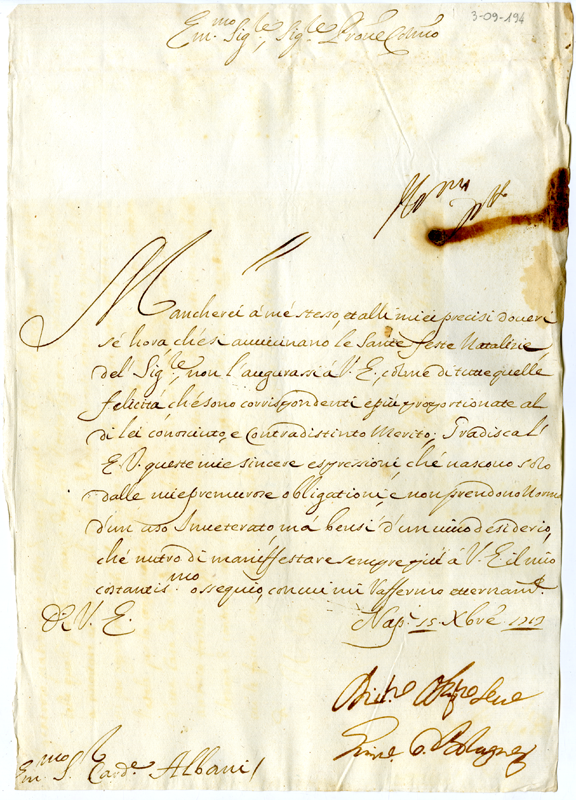 3-09-194
Em.mo Sig.re, Sig.re Prone Colmo
Mancherei á mé stesso, et alli miei precisi doveri
sé hora ché si avvicinano le Sante feste Natalizie
del Sig.re, non l'augurassi á V. E. colme di tutte quelle
felicitá ché sono corrispondenti e piú proportionate al
di lei conosciuto, e Contradistinto Merito; Gradisca l'
E. V. queste mie sincere espressioni, ché nascono solo
dalle mie premurose obligationi, é non prendono Norma
d'un uso Inveterato, má bensi d'un vivo desiderio,
ché nutro di maniffestare sempre piú á V. E. il mio
costantis.mo ossequio, con cui mi raffermo etternam.te
Di V. E.
Nap. 15 Xbre 1717
Em.mo S. Card.e Albani